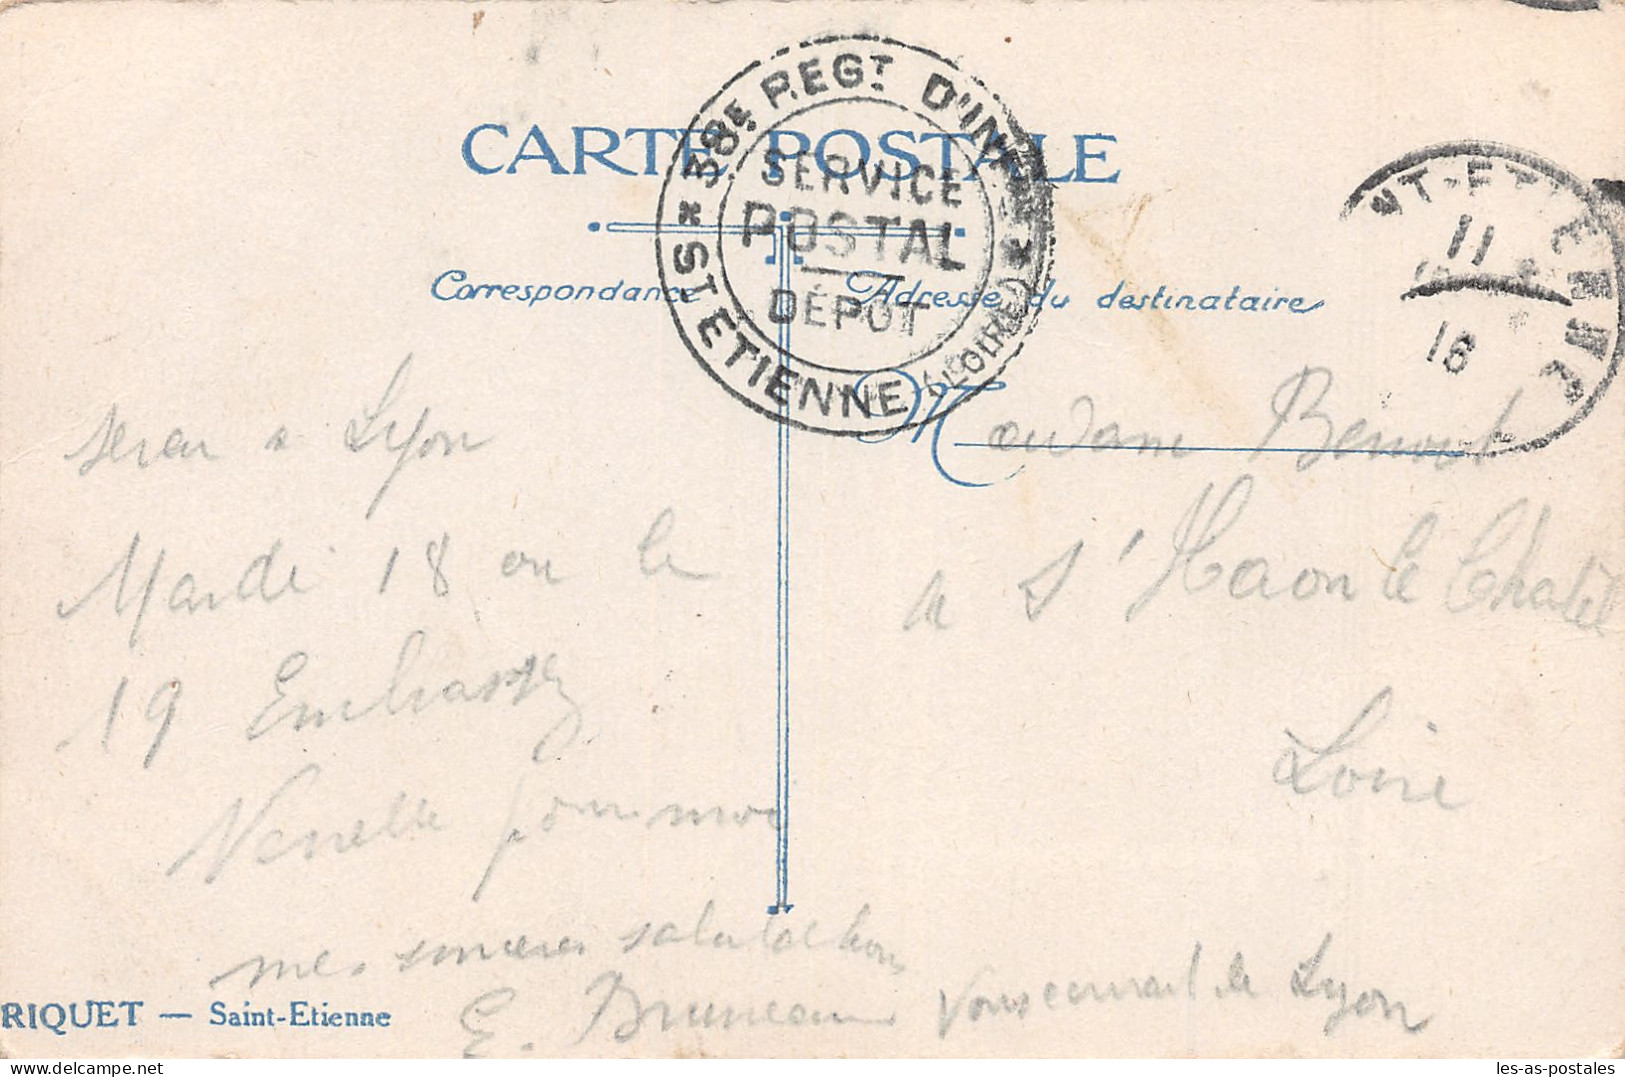 CARTE POSTALE
38E REGT D'INF
SERVICE
POSTAL
DÉPOT
* ST ETIENNE (LOIRE) *
NT-ETIENNE
11
16
Correspondance
Adresse du destinataire
serai a Lyon
Mardi 18 ou le
19 Embrassez
pour moi
mes sinceres salutations
E. Bruneau
Madame Benoit
a St Haon le Chatel
Loire
de Lyon
RIQUET — Saint-Etienne
les-as-postales